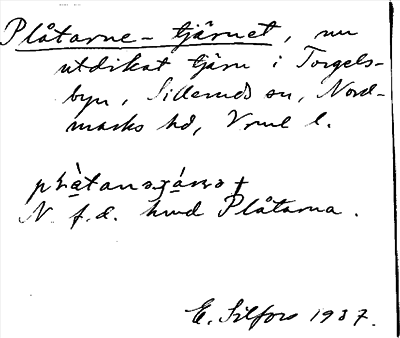 Plåtarne-tjärnet, nu
utdikat tjärn i Torgels-
byn, Silleruds sn, Nord-
marks hd, Vrml l.
N. f. d. hmd Plåtarna.
E. Silfors 1937.